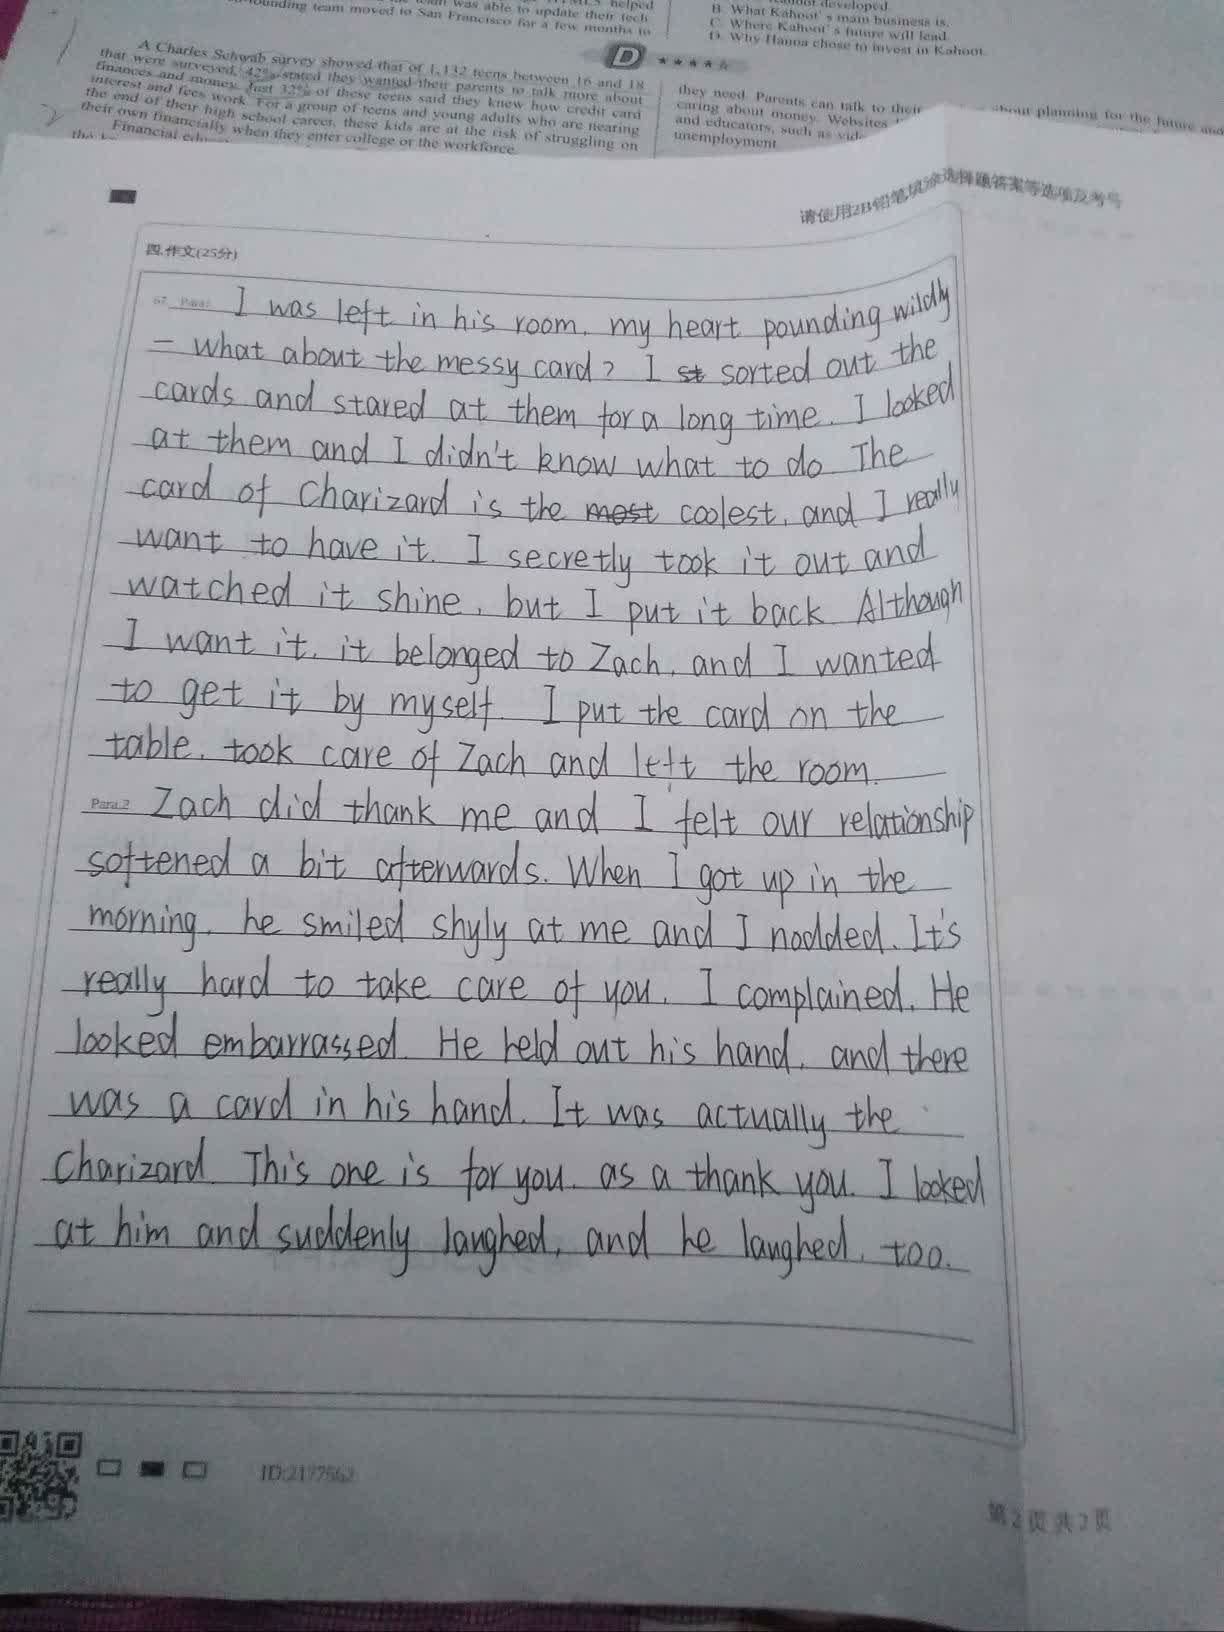 helped
was able to update their tech
founding team moved to San Francisco for a few months to
developed.
B. What Kahoot's main business is.
C. Where Kahoot's future will lead.
D. Why Hanna chose to invest in Kahoot.
D ★★★★☆
A Charles Schwab survey showed that of 1,132 teens between 16 and 18
that were surveyed, 42% stated they wanted their parents to talk more about
finances and money. Just 32% of these teens said they knew how credit card
interest and fees work. For a group of teens and young adults who are nearing
the end of their high school career, these kids are at the risk of struggling on
their own financially when they enter college or the workforce.
Financial
they need. Parents can talk to their about planning for the future and
caring about money. Websites
and educators, such as
unemployment
请使用2B铅笔填涂选择题答案等选项及考号
四.作文(25分)
67. Para1 I was left in his room, my heart pounding wildly
— what about the messy card? I st sorted out the
cards and stared at them for a long time. I looked
at them and I didn't know what to do. The
card of Charizard is the most coolest, and I really
want to have it. I secretly took it out and
watched it shine, but I put it back. Although
I want it, it belonged to Zach, and I wanted
to get it by myself. I put the card on the
table, took care of Zach and left the room.
Para.2 Zach did thank me and I felt our relationship
softened a bit afterwards. When I got up in the
morning, he smiled shyly at me and I nodded. It's
really hard to take care of you. I complained. He
looked embarrassed. He held out his hand, and there
was a card in his hand. It was actually the
Charizard. This one is for you, as a thank you. I looked
at him and suddenly laughed, and he laughed, too.
ID:2177562
第2页 共2页